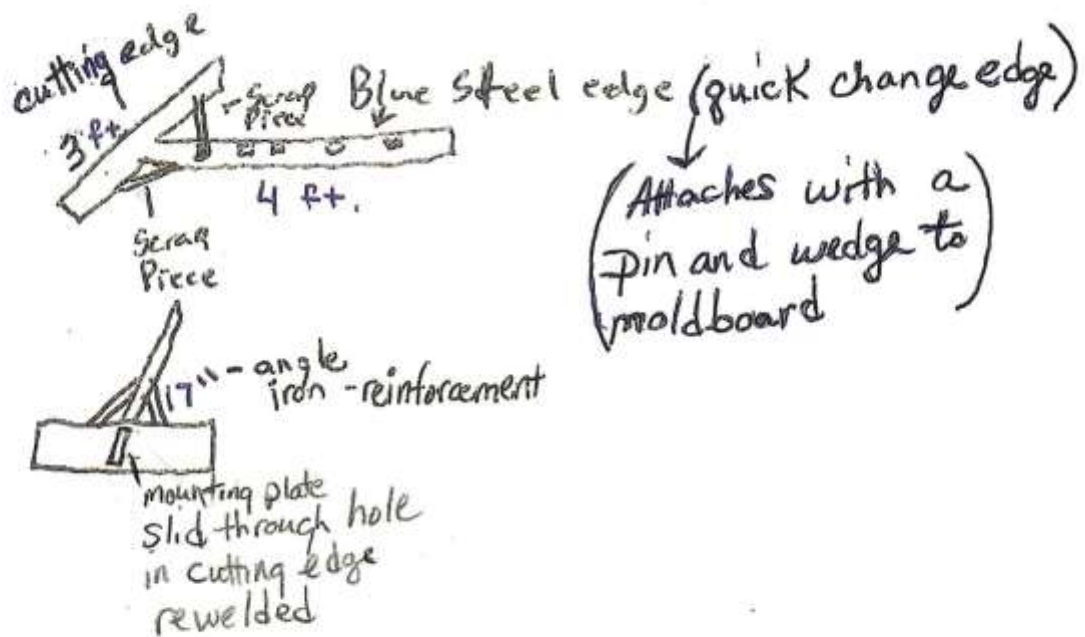 cutting edge
3 ft.
Scrap
Piece
Blue Steel edge (quick change edge)
4 ft.
(Attaches with a
pin and wedge to
moldboard)
Scrap
Piece
17" - angle
iron - reinforcement
mounting plate
slid through hole
in cutting edge
rewelded